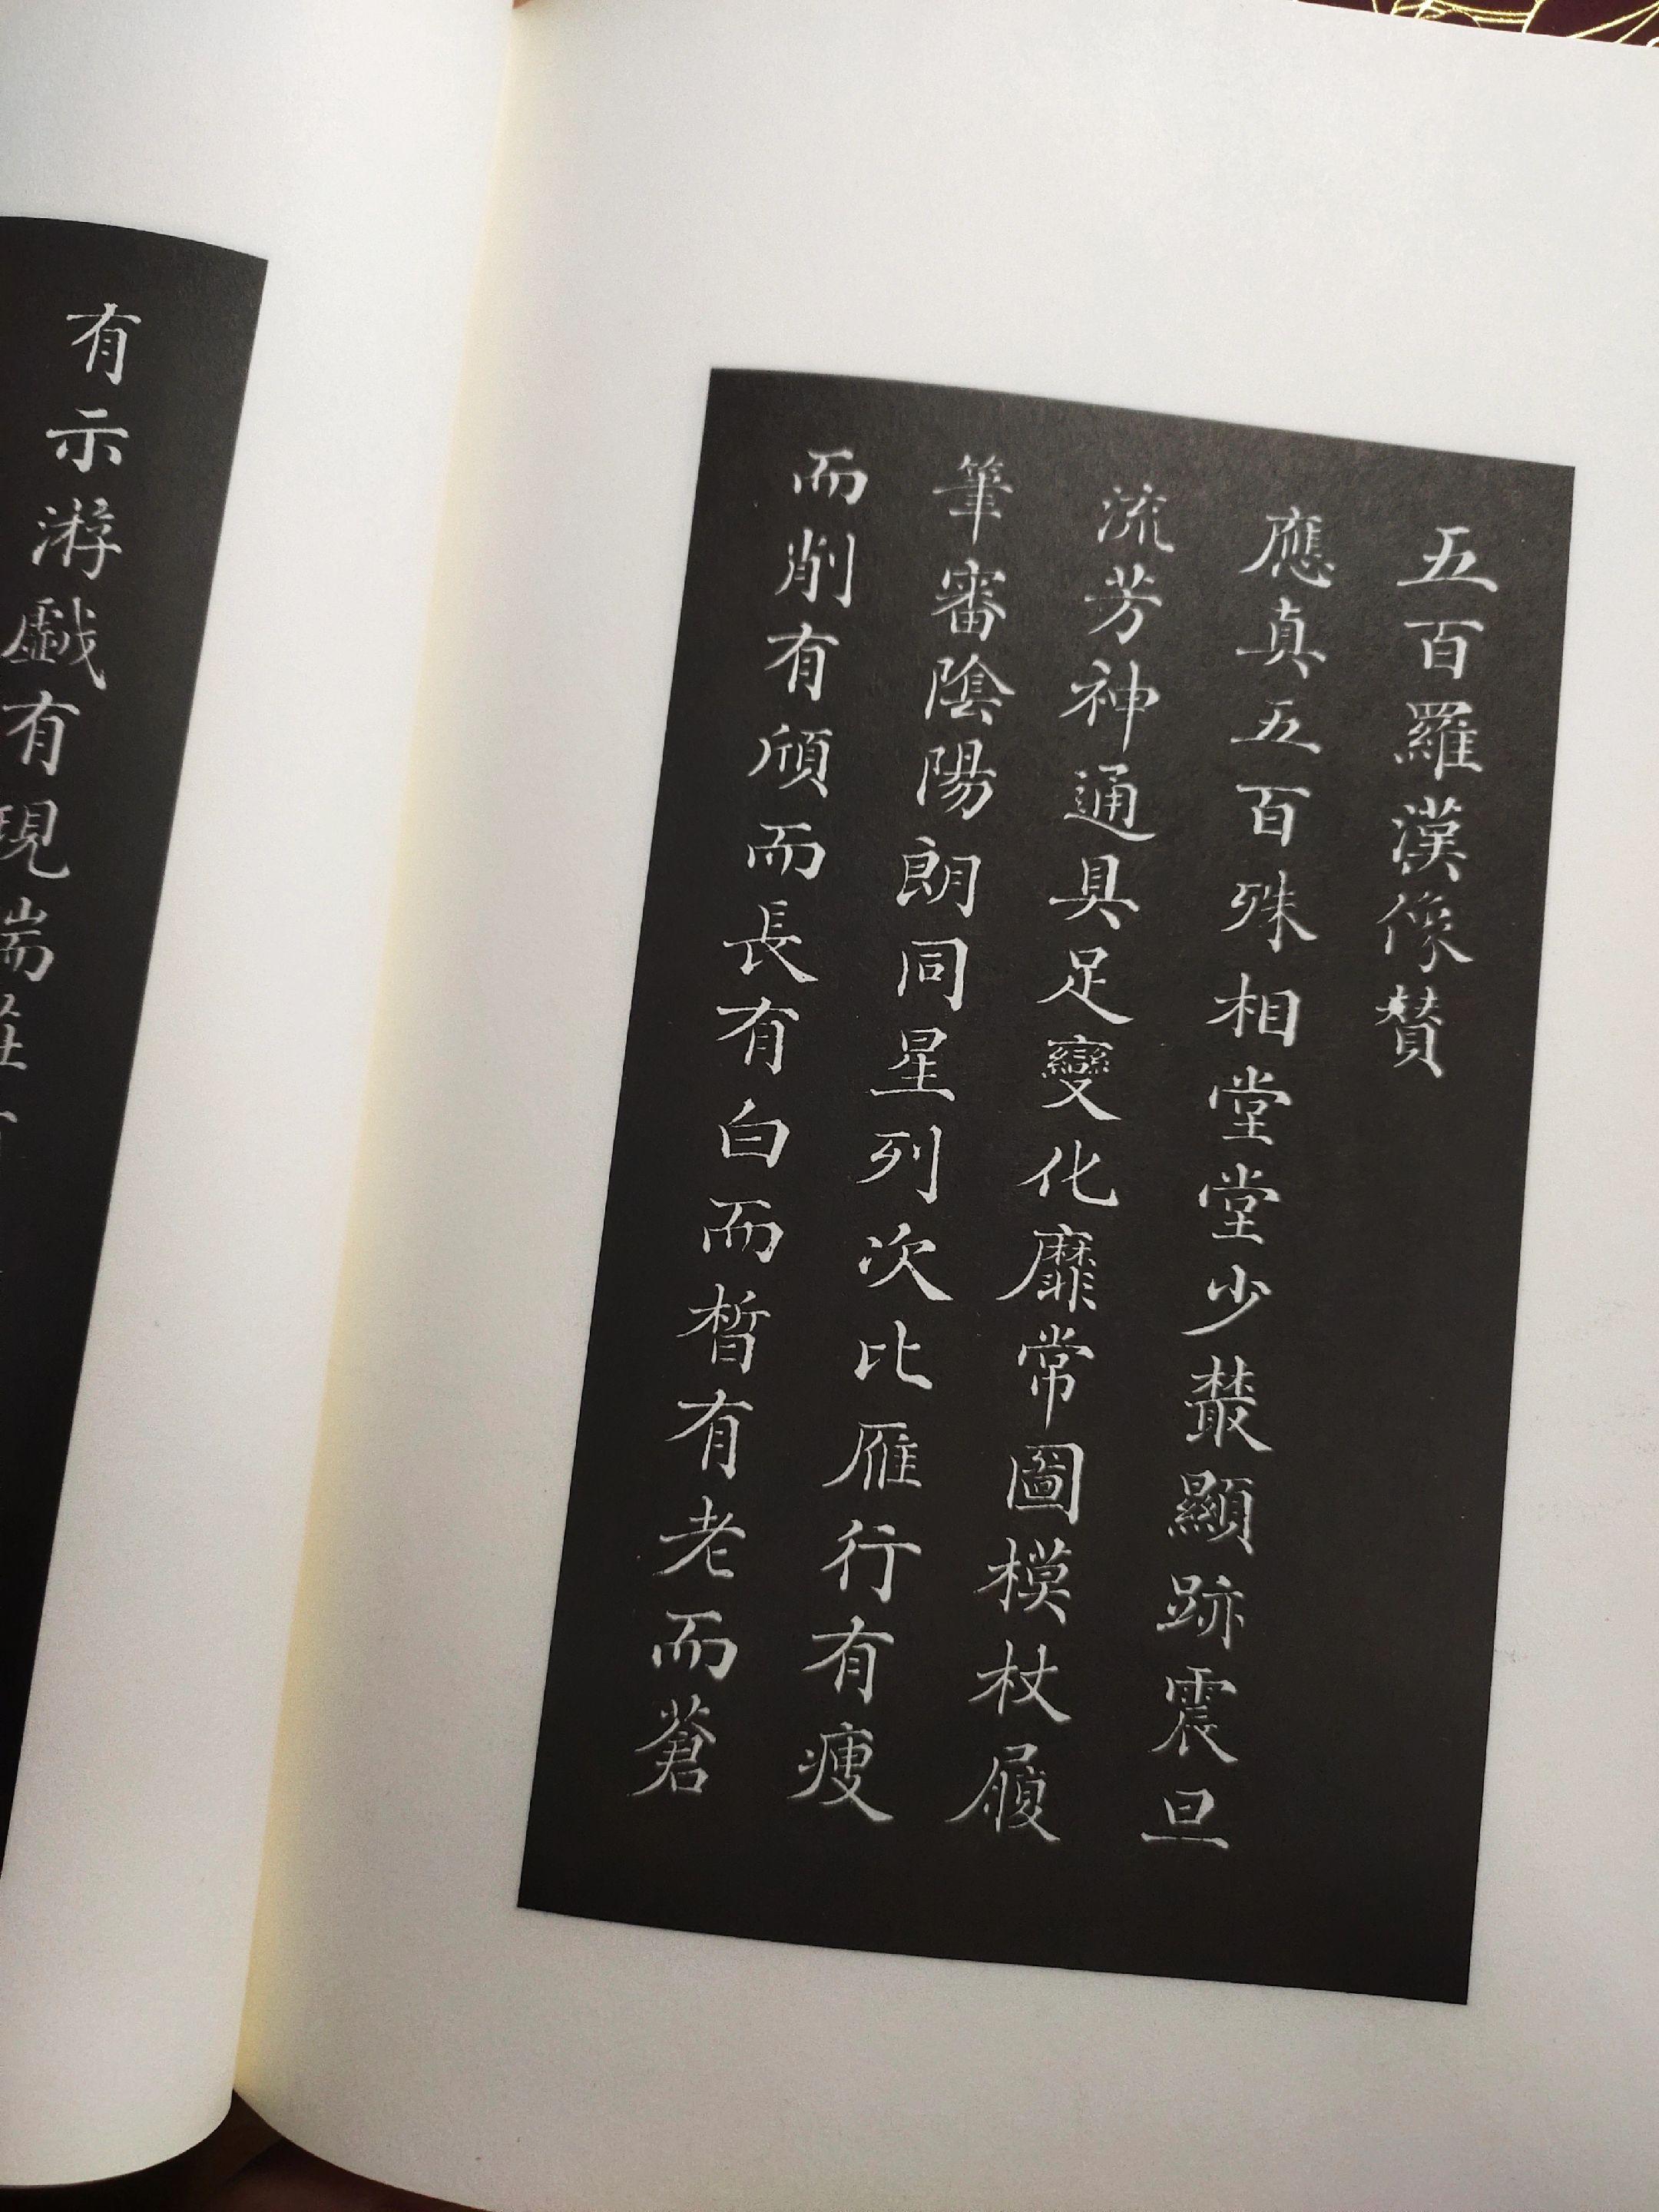 五百羅漢像贊
應真五百殊相堂堂少叢顯跡震旦
流芳神通具足變化靡常圖模杖履
筆審陰陽朗同星列次比雁行有瘦
而削有頎而長有白而皙有老而蒼
有示游戲有現端莊